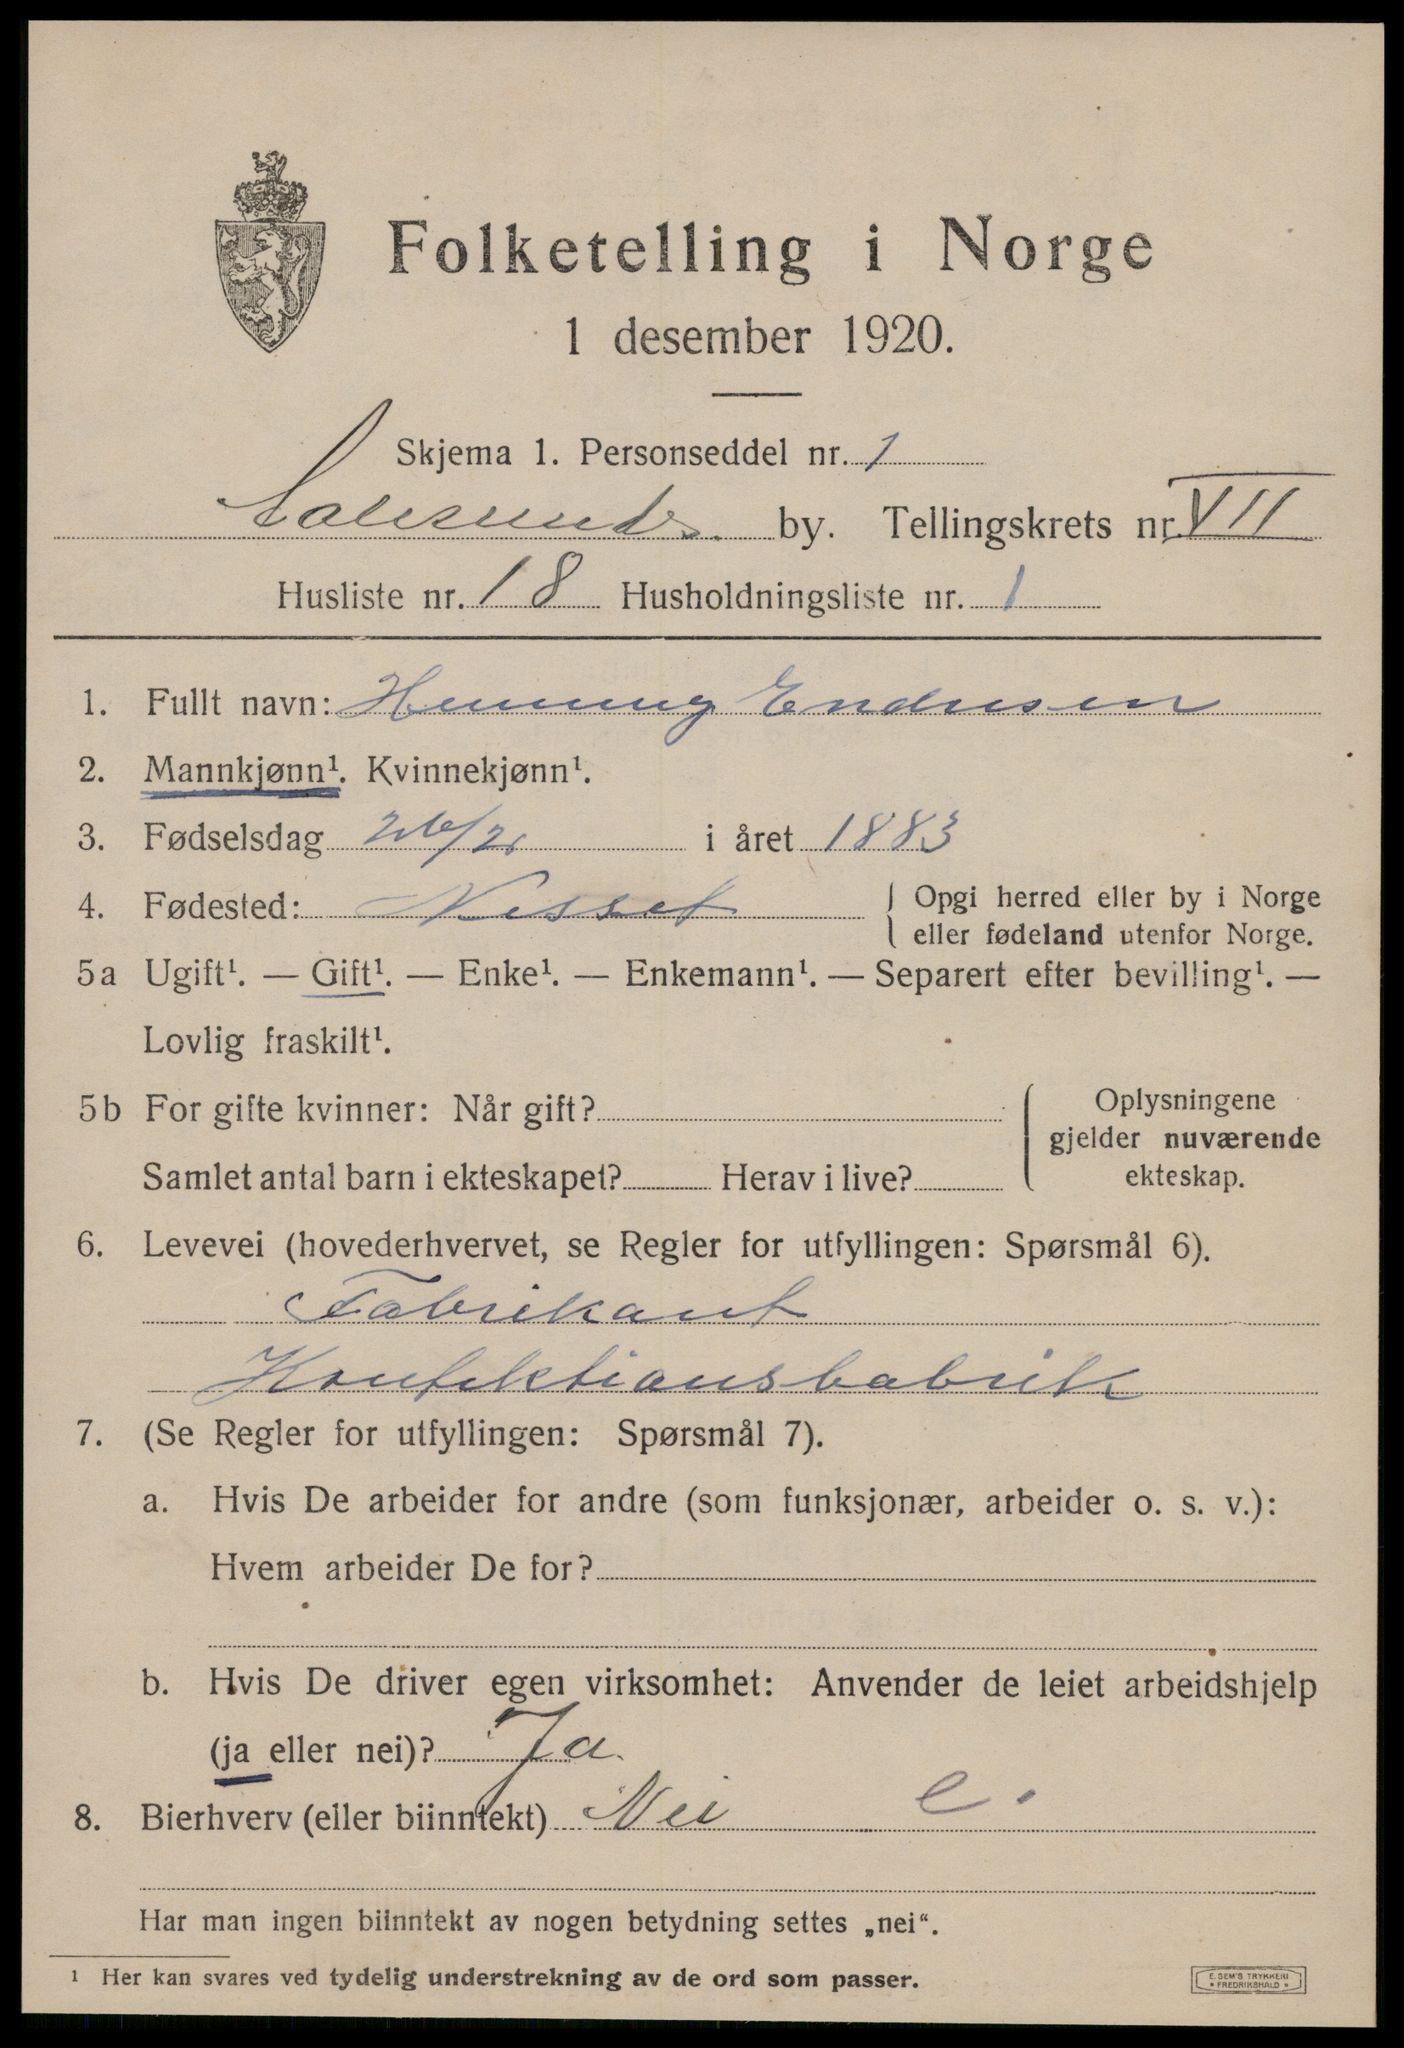 Folketelling i Norge
1 desember 1920.
Skjema 1. Personseddel nr. 1
Aalesunds by. Tellingskrets nr. VII
Husliste nr. 18 Husholdningsliste nr. 1
1. Fullt navn: Henning Endresen
2. Mannkjønn¹. Kvinnekjønn¹.
3. Fødselsdag 26/2 i året 1883
4. Fødested: Nesset { Opgi herred eller by i Norge
eller fødeland utenfor Norge.
5a Ugift¹. — Gift¹. — Enke¹. — Enkemann¹. — Separert efter bevilling¹. —
Lovlig fraskilt¹.
5b For gifte kvinner: Når gift?
Samlet antal barn i ekteskapet? Herav i live?
{ Oplysningene
gjelder nuværende
ekteskap.
6. Levevei (hovederhvervet, se Regler for utfyllingen: Spørsmål 6).
Fabrikant
Konfektionsfabrik
7. (Se Regler for utfyllingen: Spørsmål 7).
a. Hvis De arbeider for andre (som funksjonær, arbeider o. s. v.):
Hvem arbeider De for?
b. Hvis De driver egen virksomhet: Anvender de leiet arbeidshjelp
(ja eller nei)? Ja.
8. Bierhverv (eller biinntekt) Nei e.
Har man ingen biinntekt av nogen betydning settes „nei“.
¹ Her kan svares ved tydelig understrekning av de ord som passer.
E. SEM'S TRYKKERI
* FREDRIKSHALD *